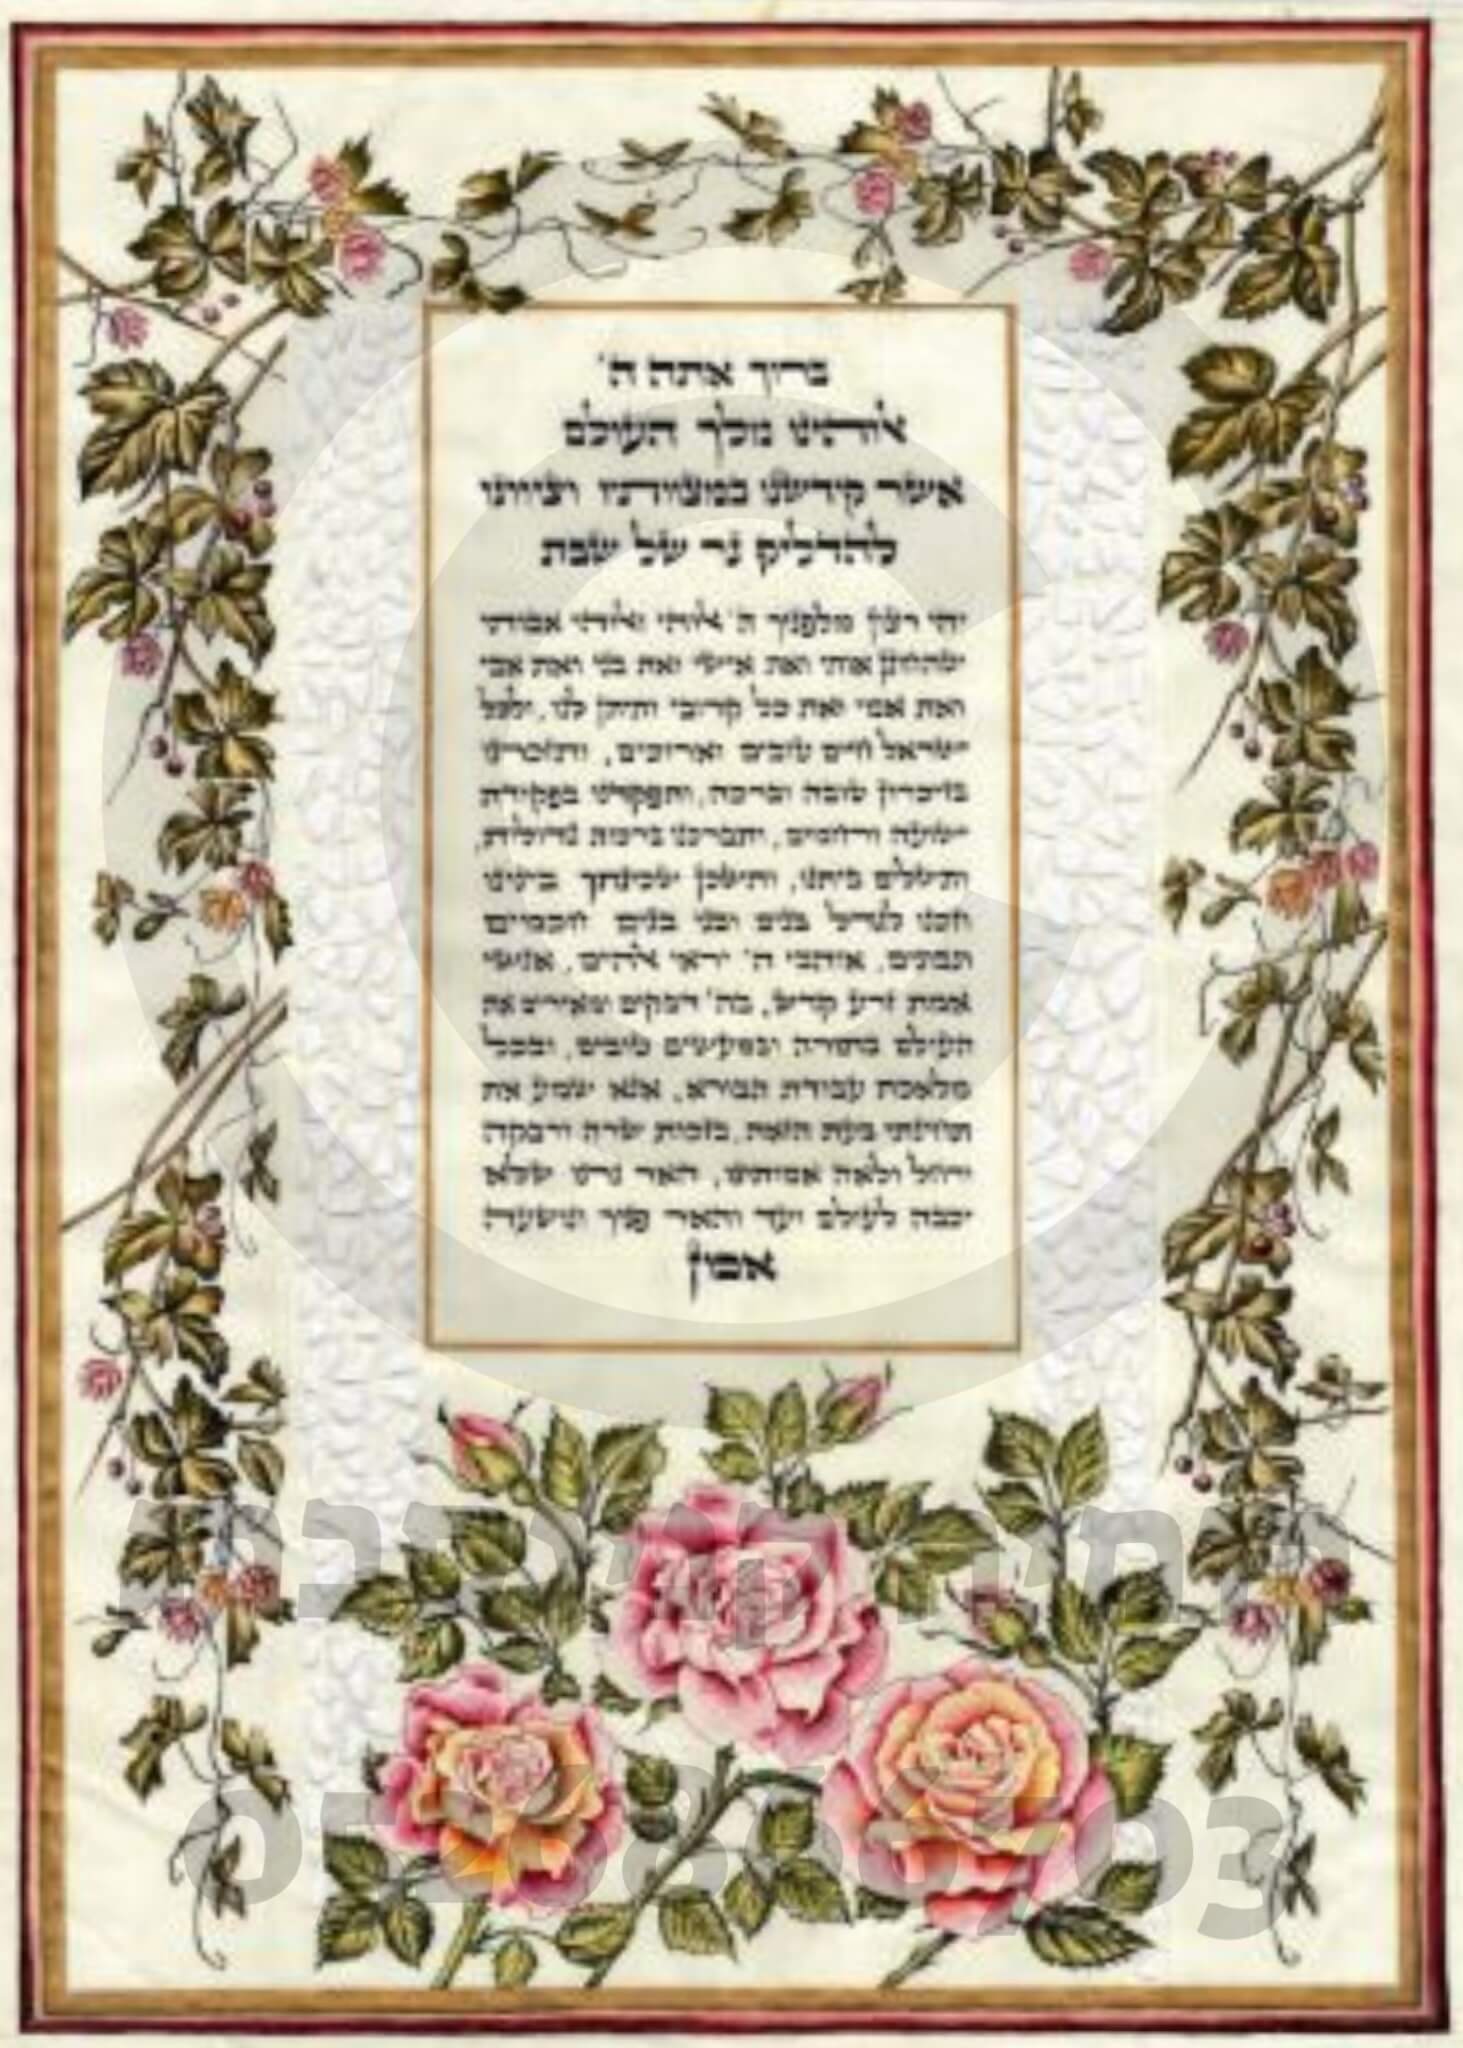 ברוך אתה ה'
אלוהינו מלך העולם
אשר קידשנו במצוותיו וציוונו
להדליק נר של שבת
יהי רצון מלפניך ה' אלוהי ואלוהי אבותי
שתחונן אותי ואת אישי ואת בני ואת אבי
ואת אמי ואת כל קרובי ותיתן לנו, ולכל
ישראל חיים טובים וארוכים, ותזכרינו
בזיכרון טובה וברכה, ותפקדנו בפקודת
ישועה ורחמים, ותברכנו ברכות גדולות,
ותשלים ביתנו, ותשכן שכינתך בינינו
וזכנו לגדל בנים ובני בנים חכמים
ונבונים, אוהבי ה' יראי אלהים, אנשי
אמת זרע קודש, בה' דבקים ומאירים את
העולם בתורה ובמעשים טובים, ובכל
מלאכת עבודת הבורא, אנא שמע את
תחינתי בעת הזאת, בזכות שרה ורבקה
ורחל ולאה אמותינו, האר נרנו שלא
יכבה לעולם ועד והאר פניך ונושעה
אמן